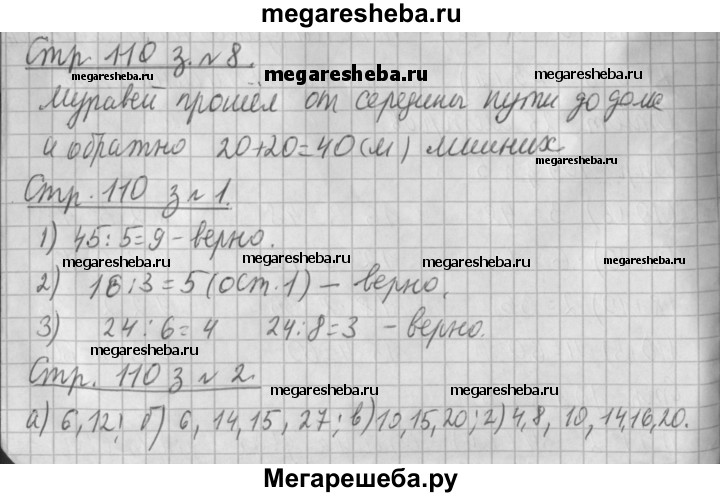 megaresheba.ru
Стр. 110 з. № 8.
megaresheba.ru megaresheba.ru megaresheba.ru
Муравей прошёл от середины пути до дома
и обратно 20+20=40(м) лишних
megaresheba.ru
Стр. 110 з № 1.
1) 45:5=9 - верно.
megaresheba.ru megaresheba.ru megaresheba.ru
2) 16:3=5(ост.1) - верно,
3) 24:6=4 24:8=3 - верно.
megaresheba.ru megaresheba.ru
Стр. 110 з № 2.
megaresheba.ru
а) 6,12; б) 6, 14,15, 27; в)10,15,20; г)4,8, 10, 14,16,20.
Мегарешеба.ру